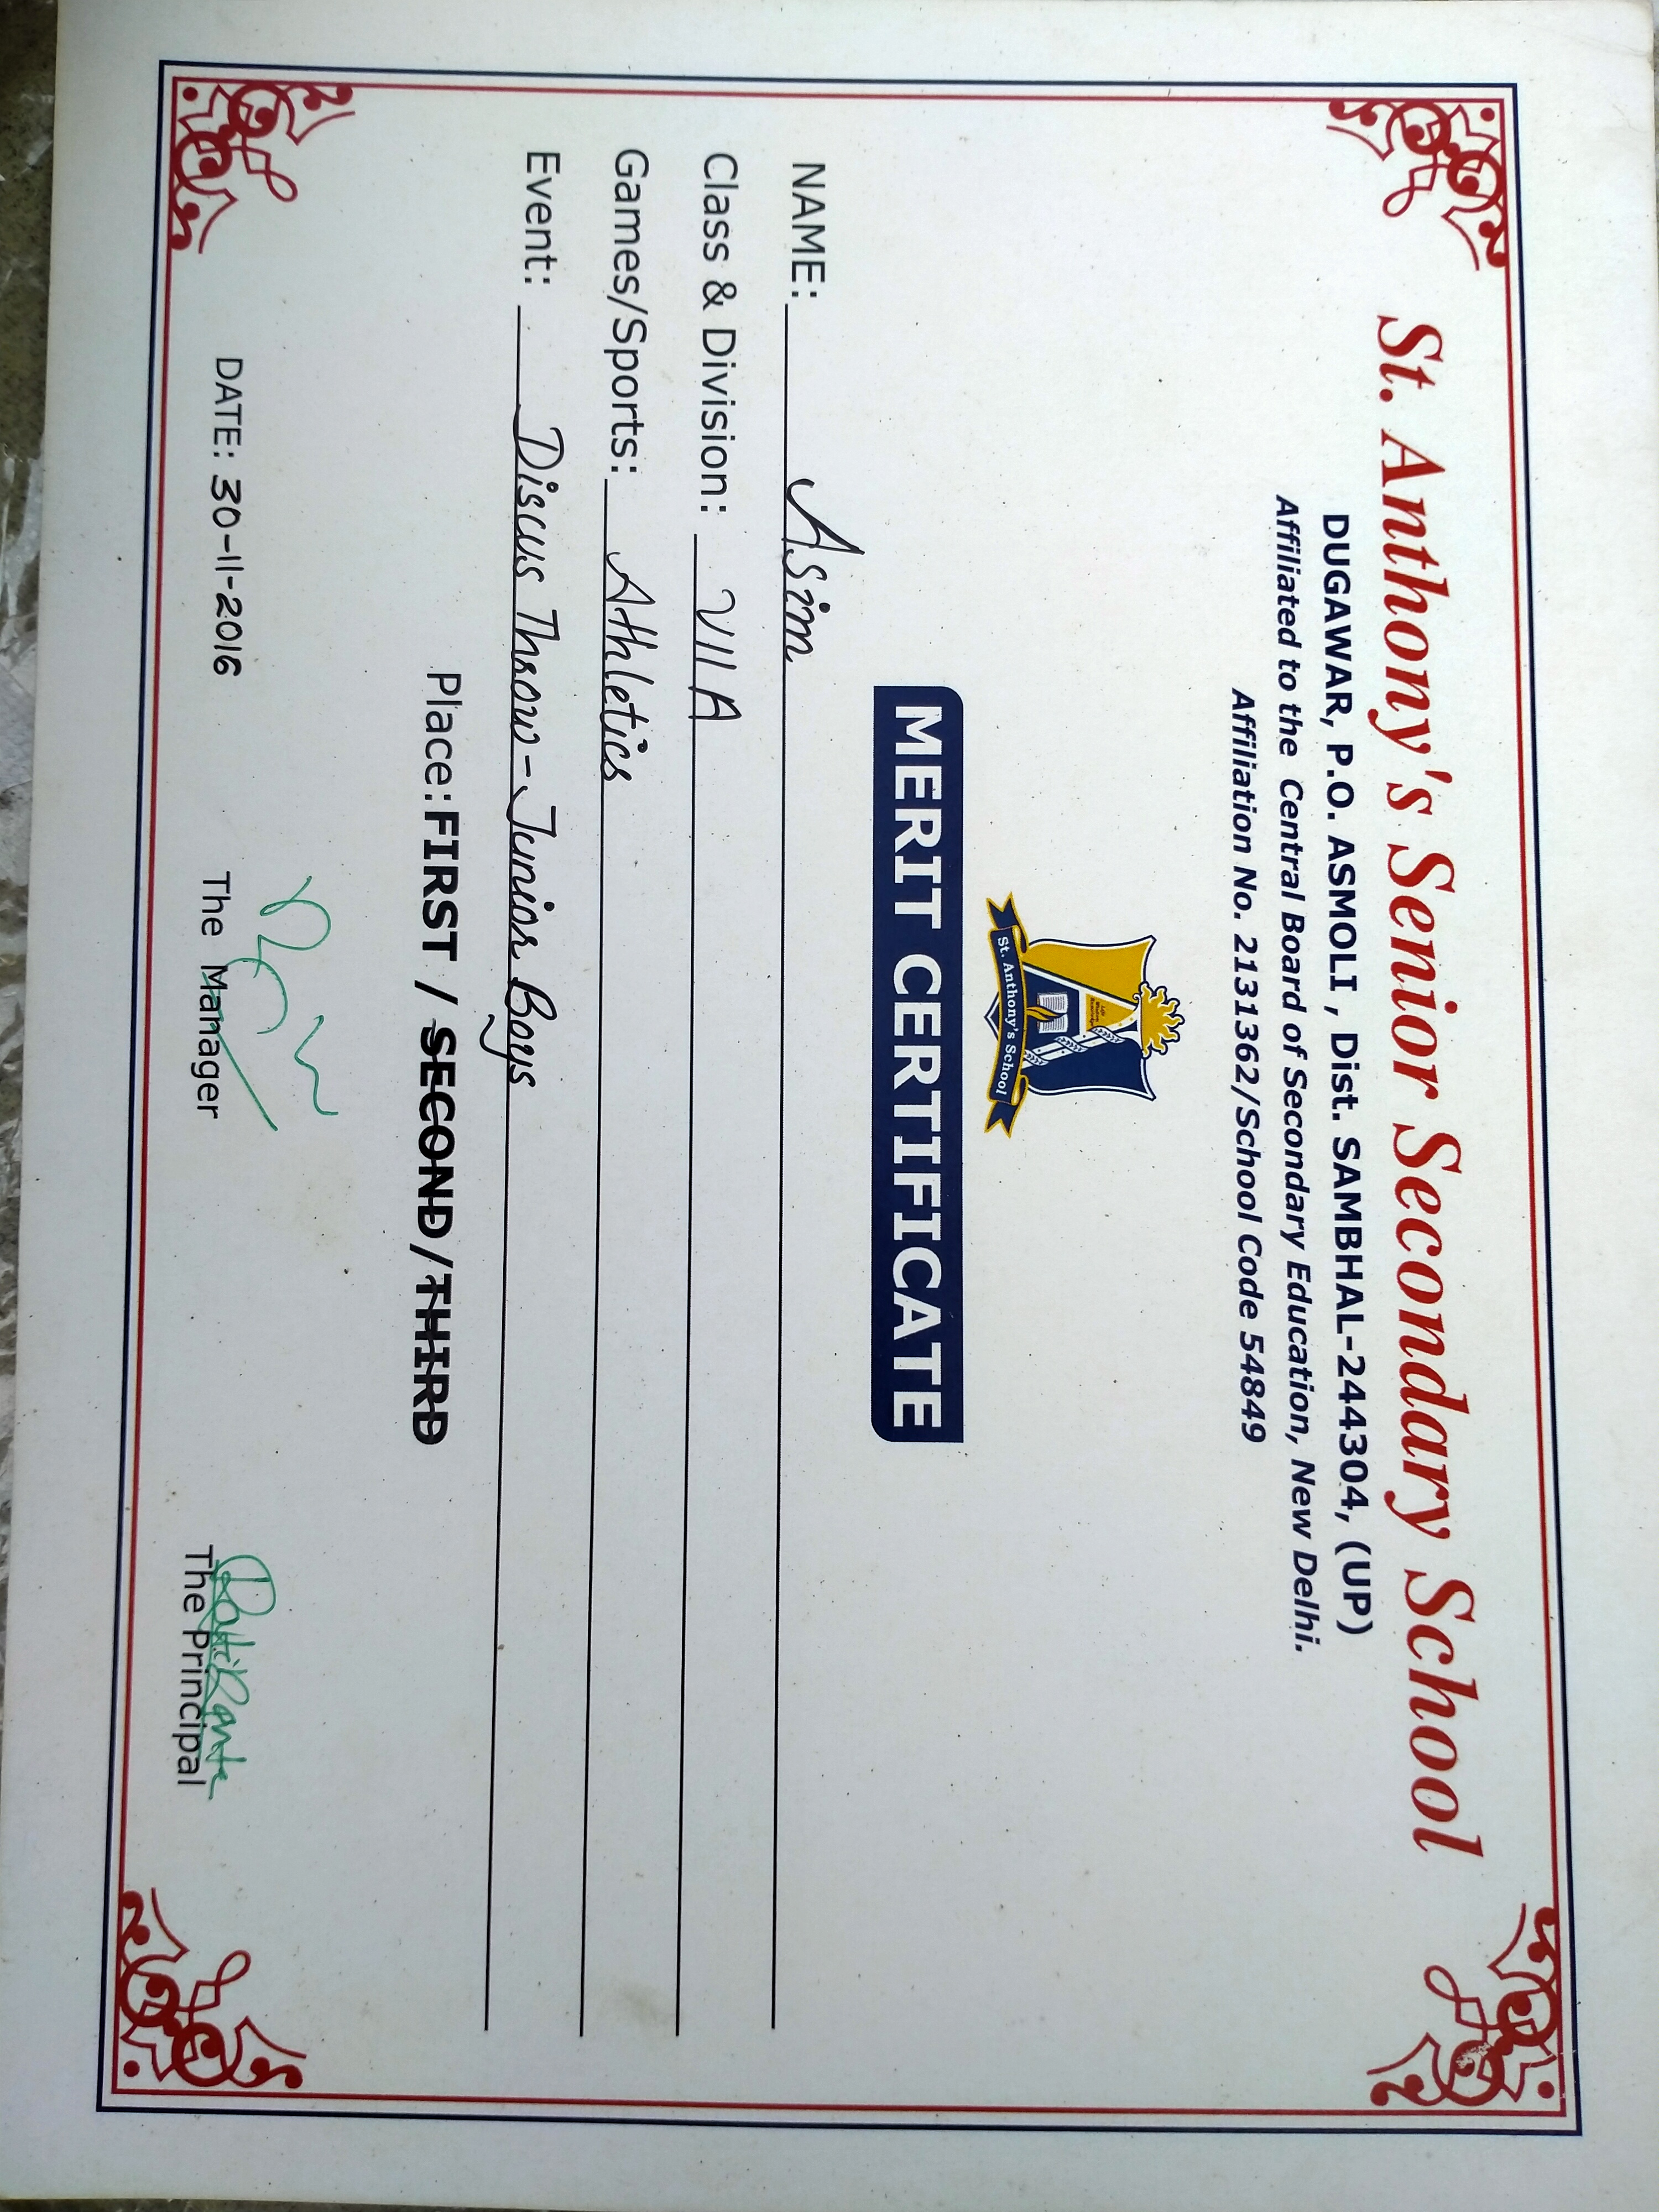 St. Anthony's Senior Secondary School
DUGAWAR, P.O. ASMOLI , Dist. SAMBHAL-244304, (UP)
Affiliated to the Central Board of Secondary Education, New Delhi.
Affiliation No. 2131362/School Code 54849
Life
Wisdom
Knowledge
St. Anthony's School
MERIT CERTIFICATE
NAME: Asim
Class & Division: VII A
Games/Sports: Athletics
Event: Discus Throw-Junior Boys
Place: FIRST / SECOND/THIRD
DATE: 30-11-2016
The Manager
The Principal